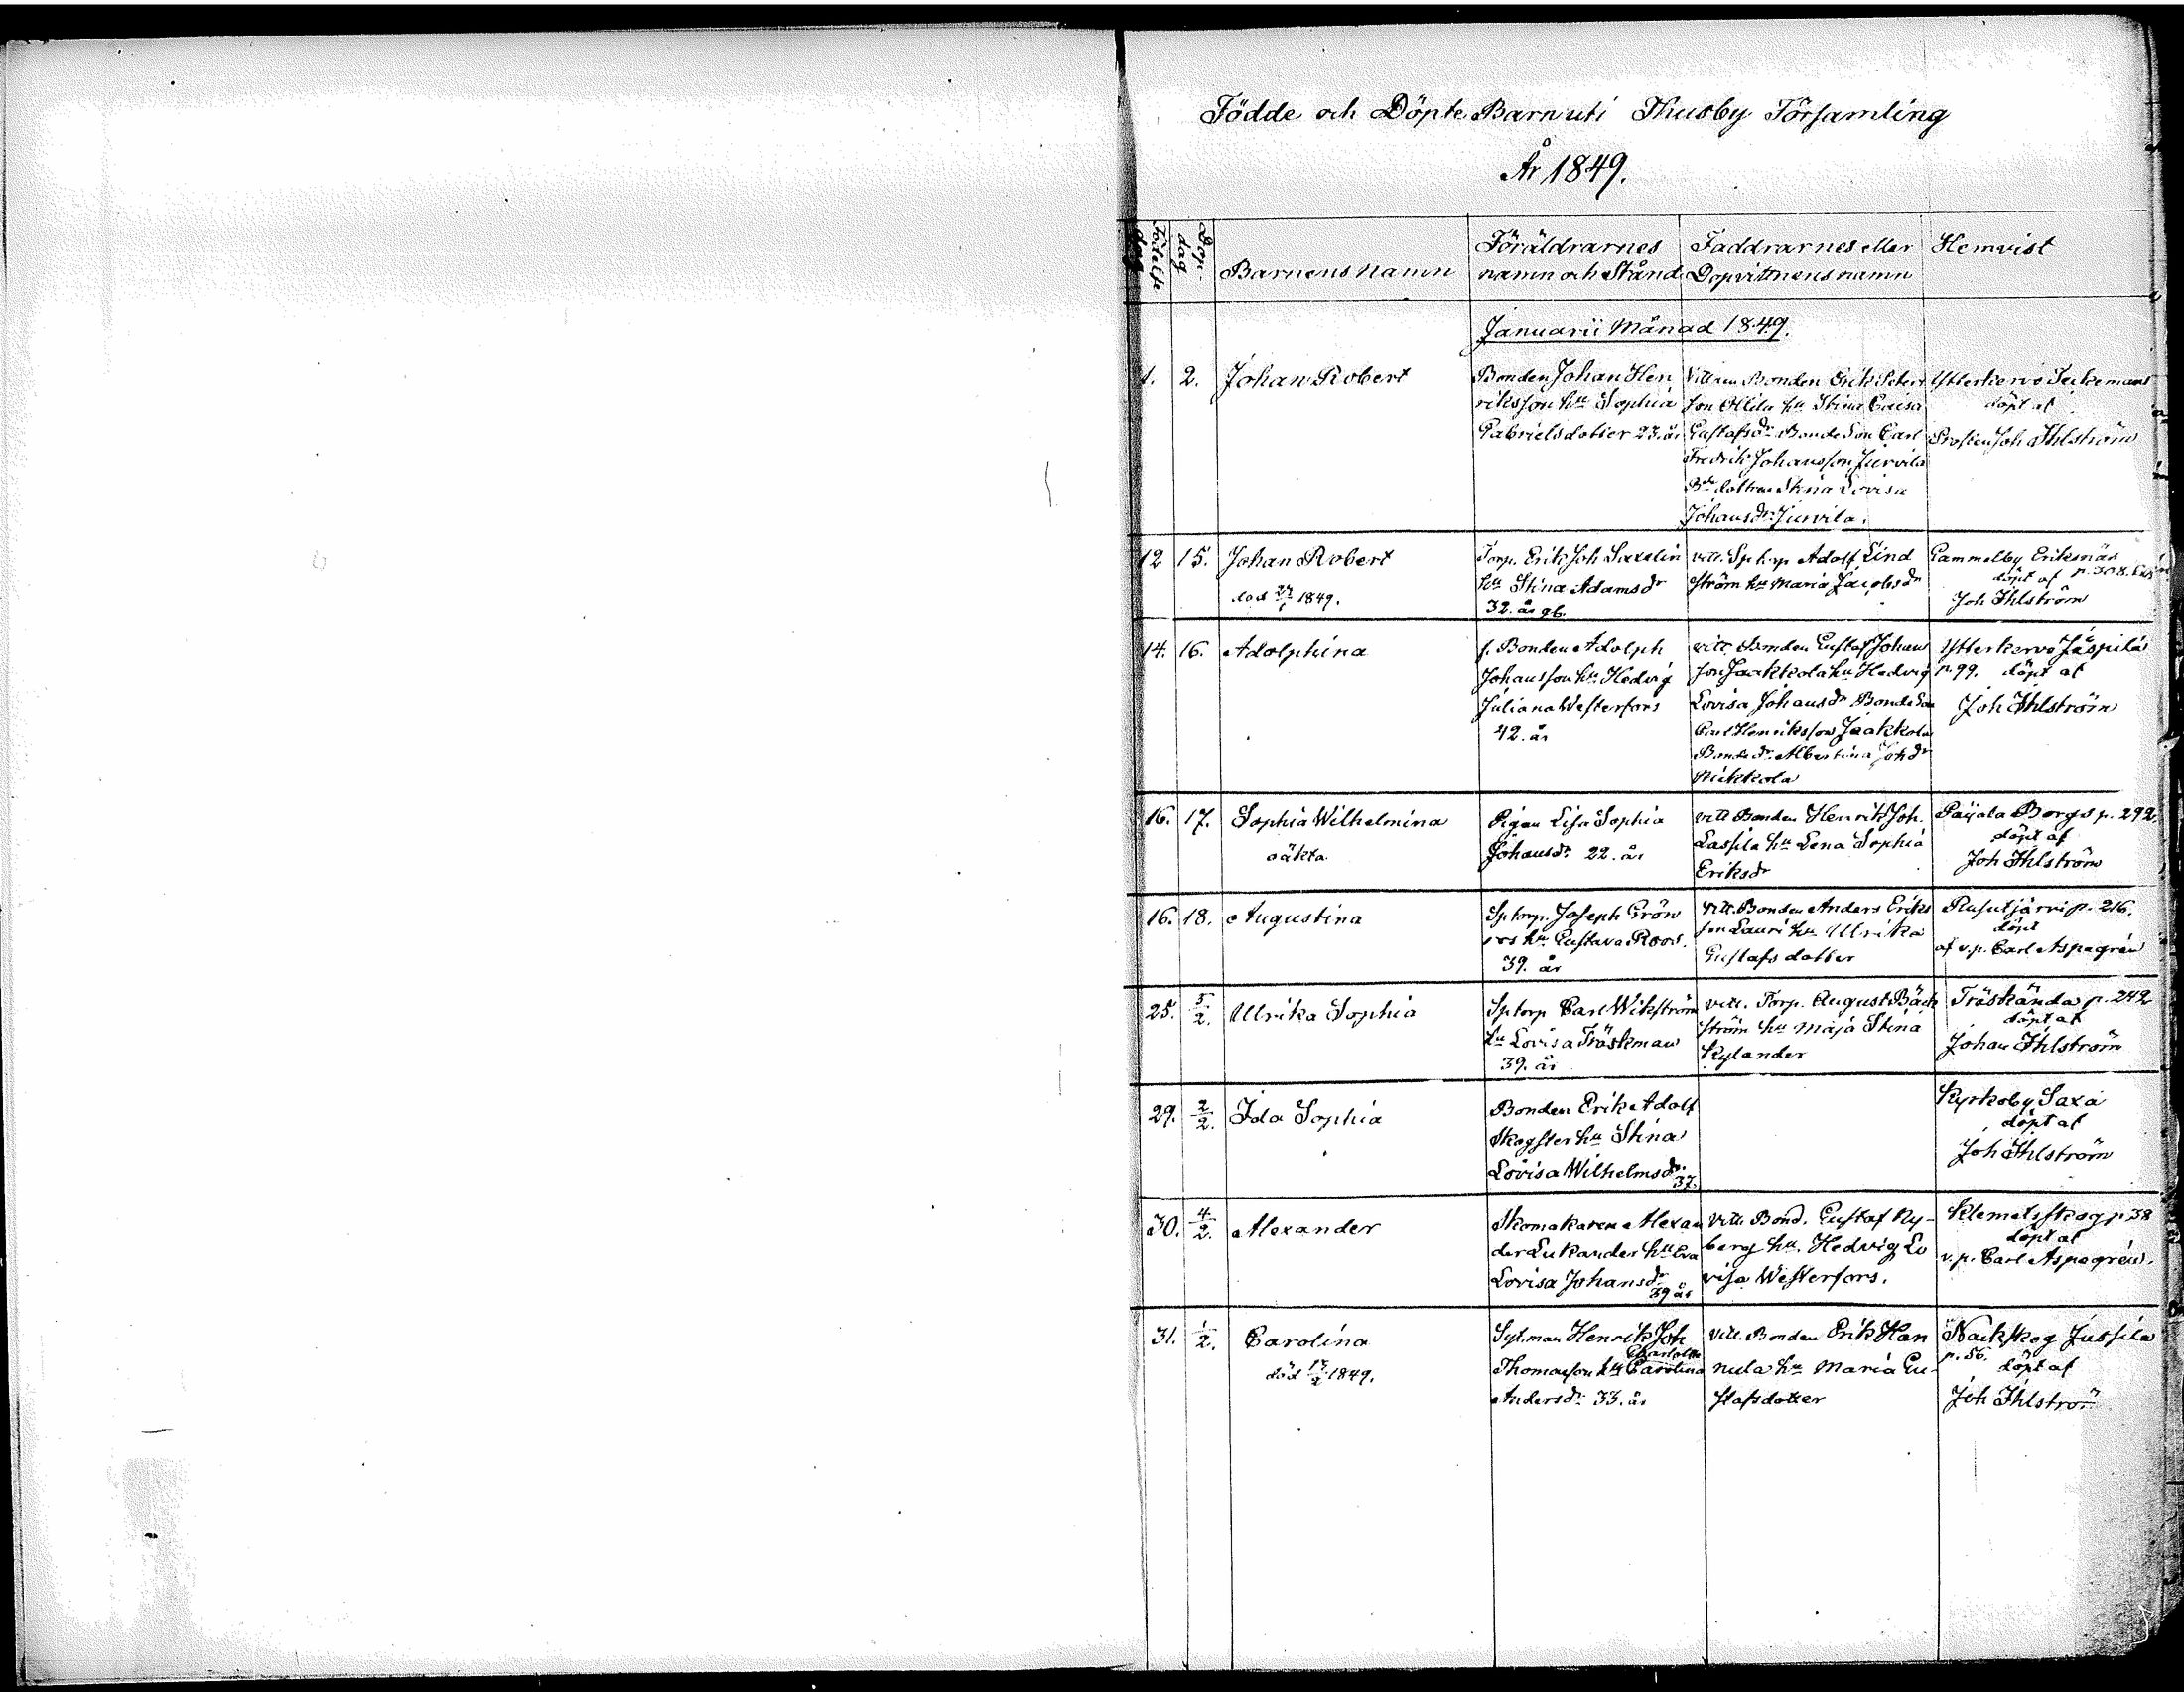 Födde och Döpte Barn uti Thusby Församling
År 1849.
Födelse dag
Döp-
dag
Barnens namn
Föräldrarnes
namn och Stånd
Faddrarnes eller
Dopvittnens namn
Hemvist
Januarii Månad 1849.
1. 2. Johan Robert
Bonden Johan Hen
riksson hu Sophia
Gabrielsdotter 23. år
Vittnen Bonden Erik
son Ollila hu Stina Caisa
Gustafsdr Bonde Son Carl
Fredrik Johansson Jurvila
Stina Lovisa
Johansdr Jurvila.
Ytterkervo
döpt af
Prosten Joh Ihlström
12 15. Johan Robert
död 1849.
Torp. Erik Joh Saxelin
hu Stina Adamsdr
32. år gb.
vitt. Sptorp Adolf Lind
ström hu Maria Jacobsdr
Gammelby Eriksnäs
döpt af p. 308.
Joh Ihlström
14. 16. Adolphina
f. Bonden Adolph
Johansson hu Hedvig
Juliana Westerfors
42. år
vitt. Bonden Gustaf Johans
son Jaakkola hu Hedvig
Lovisa Johansdr Bonde Son
Carl Henriksson Jaakkola
Bondedr. Albertina Johdr
Mikkola
Ytterkervo Jäspilä
p. 99. döpt af
Joh Ihlström
16. 17. Sophia Wilhelmina
oäkta
Pigan Lisa Sophia
Johansdr 22. år
vitt Bonden Henrik Joh.
Lassila hu Lena Sophia
Eriksdr
Paijala Borgs p. 292.
döpt af
Joh Ihlström
16. 18. Augustina
Sptorp. Joseph Grön
roos hu Gustava Roos.
39. år
Vitt. Bonden Anders Eriks
son Lauri hu Ulrika
Gustafs dotter
Rusutjärvi p. 216.
döpt
af v.p. Carl Aspegrén
25. 5/2. Ulrika Sophia
Sptorp Carl Wikström
hu Lovisa Träskman
39. år
vitt. Torp. August Bäck
ström hu Maja Stina
Kylander
Träskända p. 242
döpt af
Johan Ihlström
29. 2/2. Ida Sophia
Bonden Erik Adolf
Skogster hu Stina
Lovisa Wilhelmsdr
37.
Kyrkoby Saxa
döpt af
Joh Ihlström
30. 4/2. Alexander
Skomakaren Alexan
der Lukander hu Eva
Lovisa Johansdr
39 år
Vitt. Bond. Gustaf Ny-
berg hu. Hedvig Lo
visa Westerfors.
Klemetskog p 38
döpt af
v.p. Carl Aspegrén.
31. 1/2. Carolina
död 1849.
Syt.man Henrik Joh
Charlotta
Thomasson hu Carolina
Andersdr 33. år
vitt. Bonden Erik Han
nula hu Maria Gu-
stafsdotter
Nackskog Jussila
p. 56.
döpt af
Joh Ihlström